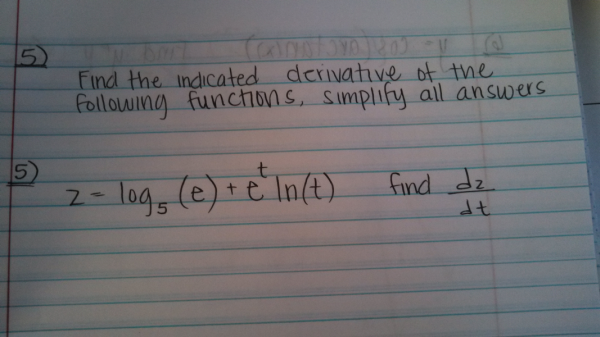 5)
Find the indicated derivative of the
following functions, simplify all answers
5) z = log₅(e) + eᵗ ln(t) find dz/dt